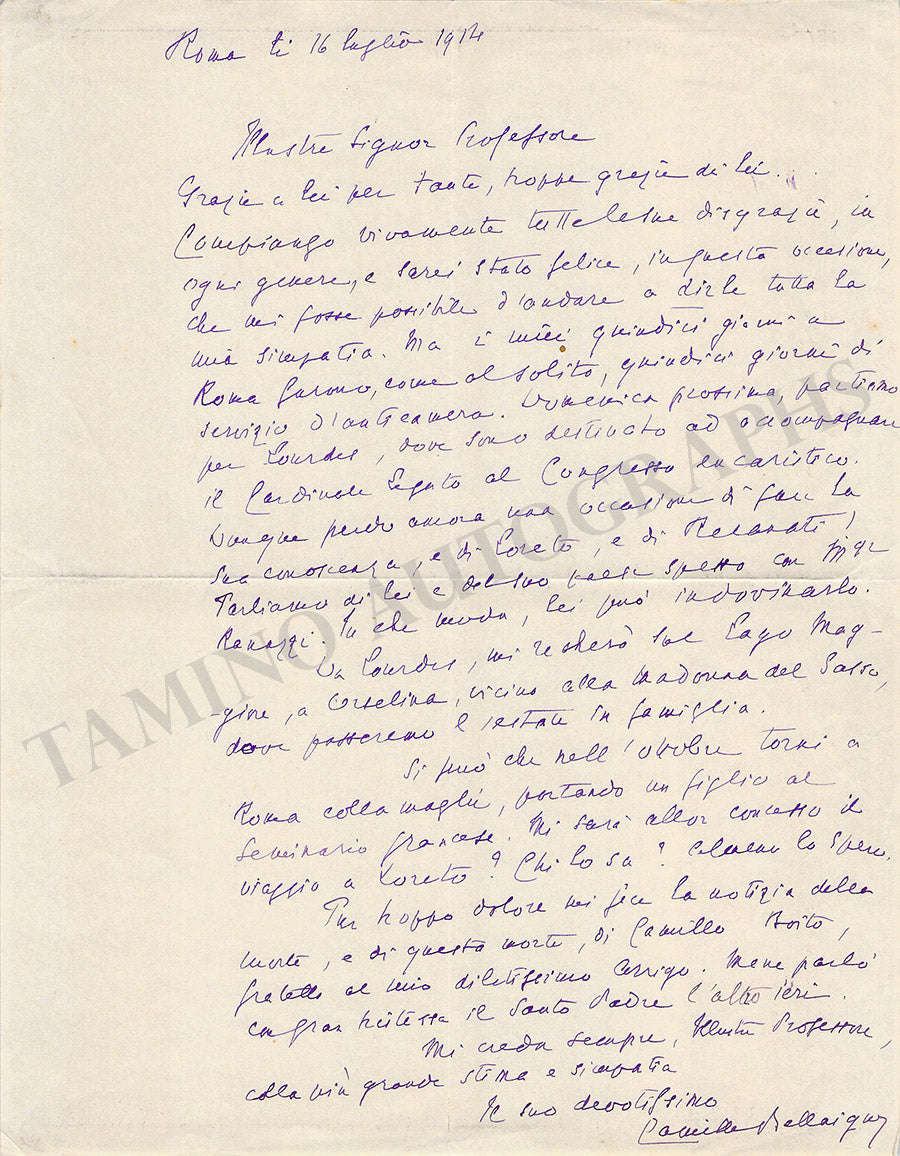 Roma li 16 luglio 1914
Illustre Signor Professore
Grazie a Lei per tante, troppe grazie di Lei . . .
Compiango vivamente tutte le sue disgrazie, in
ogni genere, e sarei stato felice, in questa occasione,
che mi fosse possibile d'andare a dirle tutta la
mia simpatia. Ma i miei quindici giorni a
Roma furono, come al solito, quindici giorni di
servizio d'anticamera. Domenica prossima, partiamo
per Lourdes, dove sono destinato ad accompagnare
il Cardinale Legato al Congresso eucaristico.
Dunque perdo ancora una occasione di fare la
sua conoscenza, e di Loreto, e di Recanati!
Parliamo di Lei e del suo paese spesso con
Ranuzzi. In che modo, Lei può indovinarlo.
Da Lourdes, mi recherò sul Lago Mag-
-giore, a Orselina, vicino alla Madonna del Sasso,
dove passeremo l'estate in famiglia.
Si può che nell'ottobre torni a
Roma colla moglie, portando un figlio al
Seminario francese. Mi sarà allor concesso il
viaggio a Loreto? Chi lo sa? Almeno lo spero.
Pur troppo dolore mi fece la notizia della
morte, e di questa morte, di Camillo Boito,
fratello al mio dilettissimo Arrigo. Me ne parlò
con gran tristezza il Santo Padre l'altro ieri.
Mi creda sempre, Illustre Professore,
colla più grande stima e simpatia
Il suo devotissimo
Camille Bellaigue
TAMINO AUTOGRAPHS